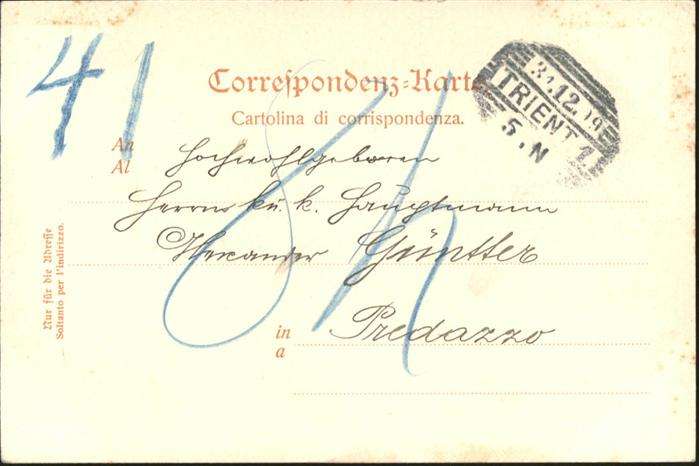 41
Correspondenz-Karte
Cartolina di corrispondenza.
31.12.99
TRIENT 1
5.N
An
Al
Hochwohlgeboren
Herrn k.u.k. Hauptmann
Alexander Günther
in
a
Predazzo
Nur für die Adresse
Soltanto per l'indirizzo.